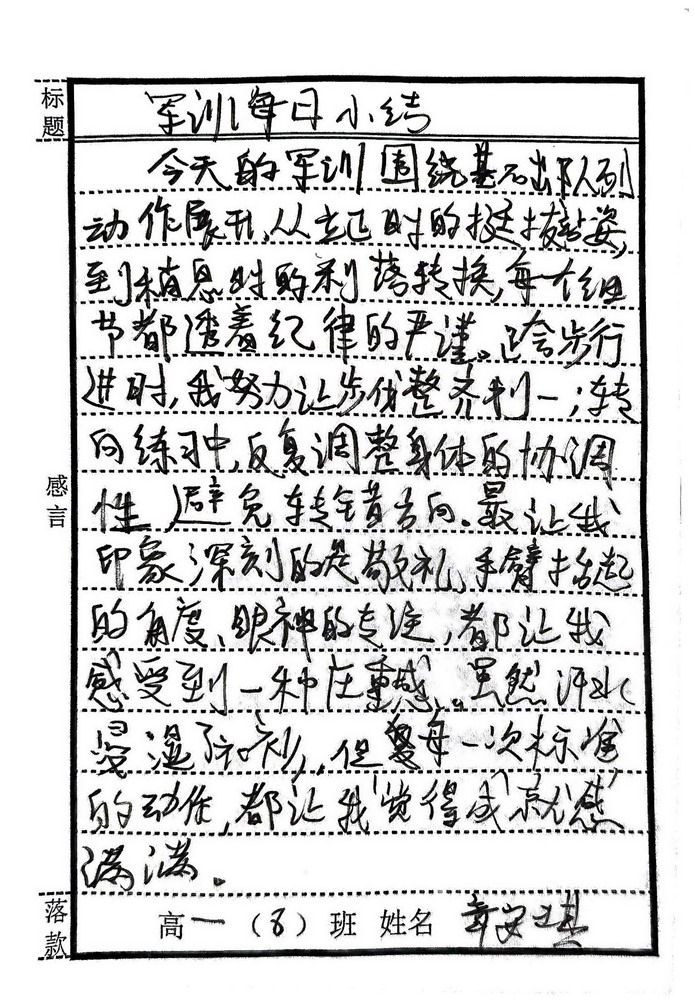 标题
军训每日小结
今天的军训围绕基础队列
动作展开,从立正时的挺拔站姿,
到稍息时的利落转换,每个细
节都透着纪律的严谨。正会步行
进时,我努力让步伐整齐利一;转
向练习中,反复调整身体的协调
性,避免转错方向。最让我
印象深刻的是敬礼,手臂抬起
的角度、眼神的专注,都让我
感受到一种庄重感。虽然汗水
浸湿了衣衫,但每一次标准
的动作,都让我觉得成就感
满满。
感言
落款
高一(8)班 姓名 章安琪